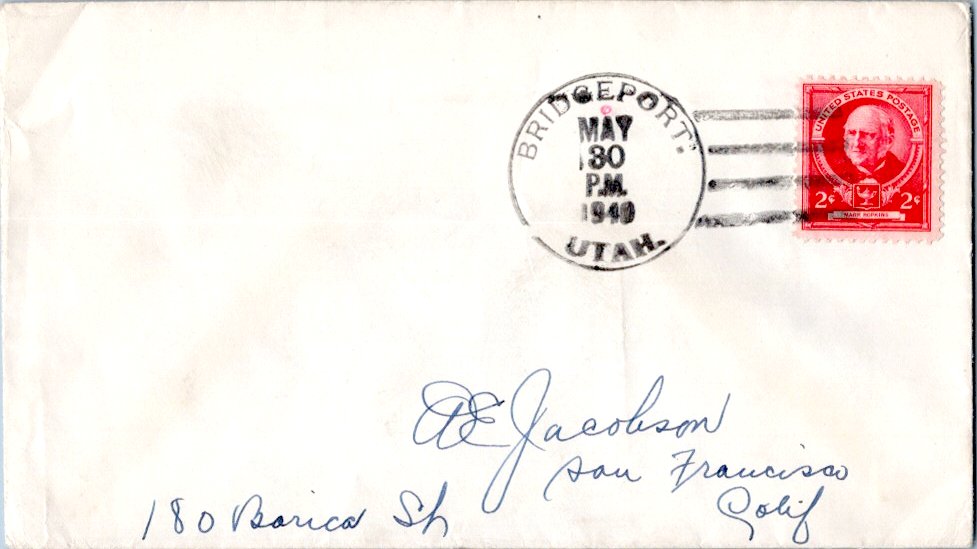 BRIDGEPORT.
MAY
30
P.M.
1940
UTAH.
UNITED STATES POSTAGE
2¢ 2¢
MARK HOPKINS
AE Jacobson
San Francisco
180 Borica St
Calif